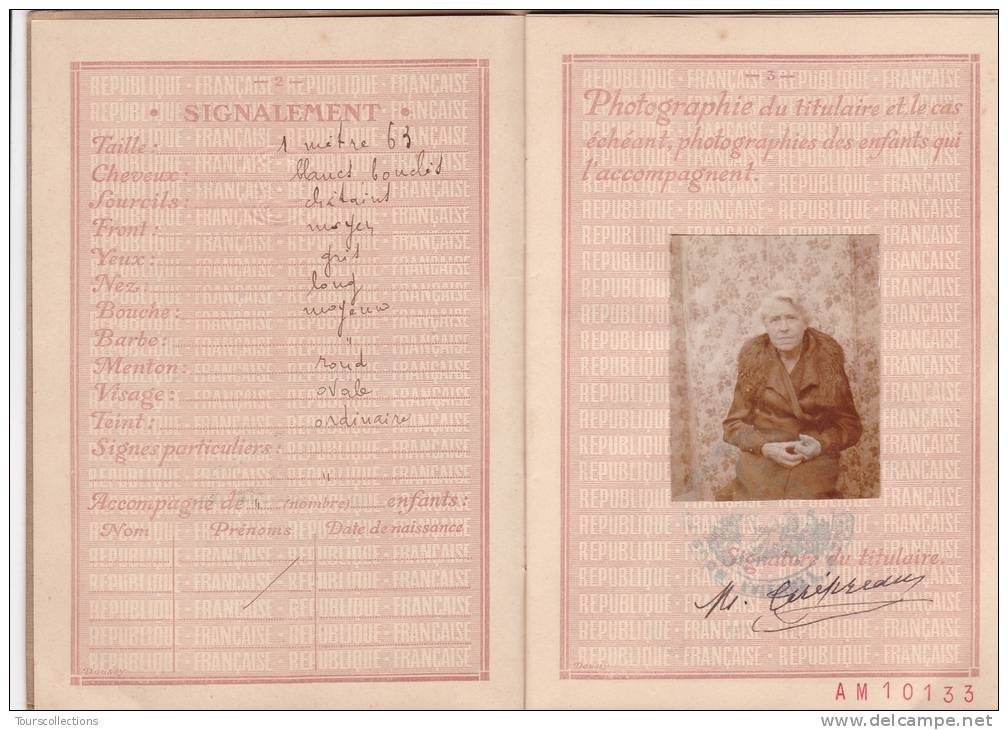 — 2 —
• SIGNALEMENT •
Taille : 1 mètre 63
Cheveux : blancs bouclés
Sourcils : châtains
Front : moyen
Yeux : gris
Nez : long
Bouche : moyenne
Barbe :
Menton : rond
Visage : ovale
Teint : ordinaire
Signes particuliers :
"
Accompagné de " (nombre) enfants :
Nom Prénoms Date de naissance
— 3 —
Photographie du titulaire et le cas
échéant, photographies des enfants qui
l'accompagnent.
Signature du titulaire.
M.
AM10133
Tourscollections
www.delcampe.net